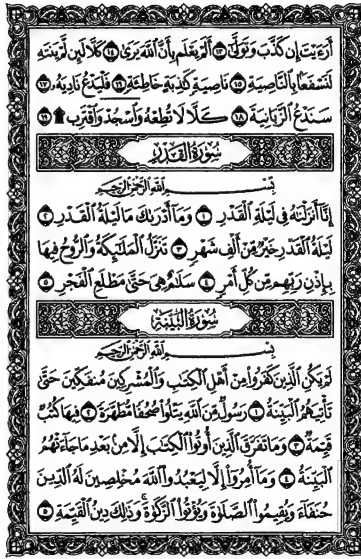 أَرَءَيْتَ إِن كَذَّبَ وَتَوَلَّىٰٓ ١٣ أَلَمْ يَعْلَم بِأَنَّ ٱللَّهَ يَرَىٰ ١٤ كَلَّا لَئِن لَّمْ يَنتَهِ
لَنَسْفَعًۢا بِٱلنَّاصِيَةِ ١٥ نَاصِيَةٍ كَٰذِبَةٍ خَاطِئَةٍ ١٦ فَلْيَدْعُ نَادِيَهُۥ ١٧
سَنَدْعُ ٱلزَّبَانِيَةَ ١٨ كَلَّا لَا تُطِعْهُ وَٱسْجُدْ وَٱقْتَرِب ۩ ١٩
سُورَةُ ٱلْقَدْرِ
بِسْمِ ٱللَّهِ ٱلرَّحْمَٰنِ ٱلرَّحِيمِ
إِنَّآ أَنزَلْنَٰهُ فِى لَيْلَةِ ٱلْقَدْرِ ١ وَمَآ أَدْرَىٰكَ مَا لَيْلَةُ ٱلْقَدْرِ ٢
لَيْلَةُ ٱلْقَدْرِ خَيْرٌ مِّنْ أَلْفِ شَهْرٍ ٣ تَنَزَّلُ ٱلْمَلَٰٓئِكَةُ وَٱلرُّوحُ فِيهَا
بِإِذْنِ رَبِّهِم مِّن كُلِّ أَمْرٍ ٤ سَلَٰمٌ هِىَ حَتَّىٰ مَطْلَعِ ٱلْفَجْرِ ٥
سُورَةُ ٱلْبَيِّنَةِ
بِسْمِ ٱللَّهِ ٱلرَّحْمَٰنِ ٱلرَّحِيمِ
لَمْ يَكُنِ ٱلَّذِينَ كَفَرُوا۟ مِنْ أَهْلِ ٱلْكِتَٰبِ وَٱلْمُشْرِكِينَ مُنفَكِّينَ حَتَّىٰ
تَأْتِيَهُمُ ٱلْبَيِّنَةُ ١ رَسُولٌ مِّنَ ٱللَّهِ يَتْلُوا۟ صُحُفًا مُّطَهَّرَةً ٢ فِيهَا كُتُبٌ
قَيِّمَةٌ ٣ وَمَا تَفَرَّقَ ٱلَّذِينَ أُوتُوا۟ ٱلْكِتَٰبَ إِلَّا مِنۢ بَعْدِ مَا جَآءَتْهُمُ
ٱلْبَيِّنَةُ ٤ وَمَآ أُمِرُوٓا۟ إِلَّا لِيَعْبُدُوا۟ ٱللَّهَ مُخْلِصِينَ لَهُ ٱلدِّينَ
حُنَفَآءَ وَيُقِيمُوا۟ ٱلصَّلَوٰةَ وَيُؤْتُوا۟ ٱلزَّكَوٰةَ ۚ وَذَٰلِكَ دِينُ ٱلْقَيِّمَةِ ٥